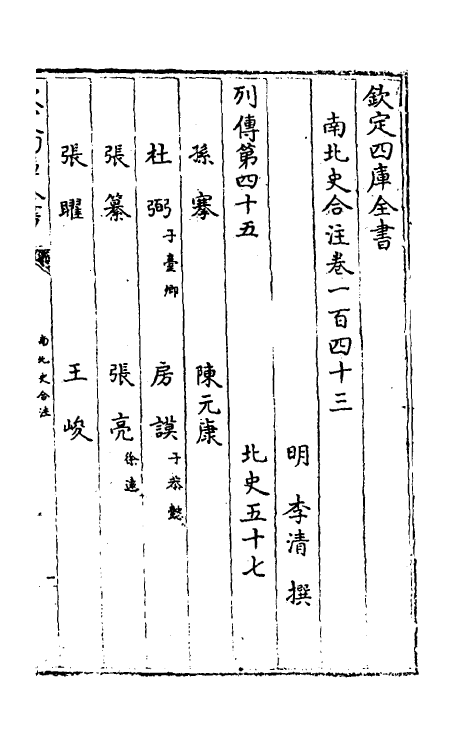 欽定四庫全書
南北史合注卷一百四十三
明 李清 撰
列傳第四十五 北史五十七
孫搴 陳元康
杜弼 子臺卿 房謨 子恭懿
張纂 張亮 徐遠
張曜 王峻
南北史合注
一